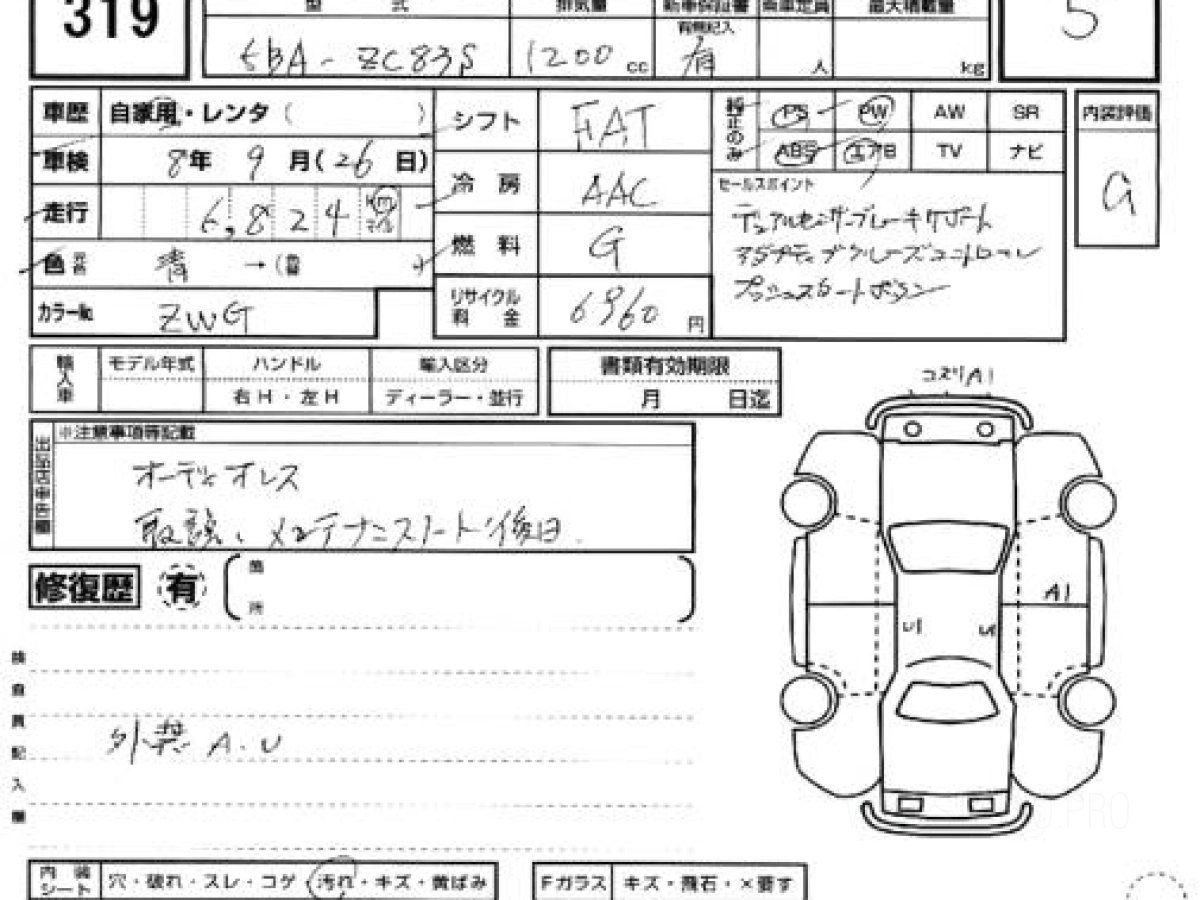 319
型 式 排気量 新車保証書 乗車定員 最大積載量
有無記入
5BA-ZC83S 1200 cc 有 人 kg 5
車歴 自家用・レンタ( )
車検 8年 9月(26日)
走行 6,824 Km マイル
色 青 →( )
カラー№ ZWG
シフト FAT
冷房 AAC
燃料 G
リサイクル料金 6960 円
純正のみ PS PW AW SR
ABS エアB TV ナビ
セールスポイント
デュアルセンサーブレーキサポート
アダプティブクルーズコントロール
プッシュスタートボタン
内装評価
G
輸入車 モデル年式 ハンドル 輸入区分
右H・左H ディーラー・並行
書類有効期限
月 日迄
出品店申告欄 ※注意事項等記載
オーディオレス
取説、メンテナンスノート後日.
修復歴 有 箇所
コスリA1
A1
U1 U1
検査員記入欄
外装 A.U
内装シート 穴・破れ・スレ・コゲ・汚れ・キズ・黄ばみ
Fガラス キズ・飛石・×要す